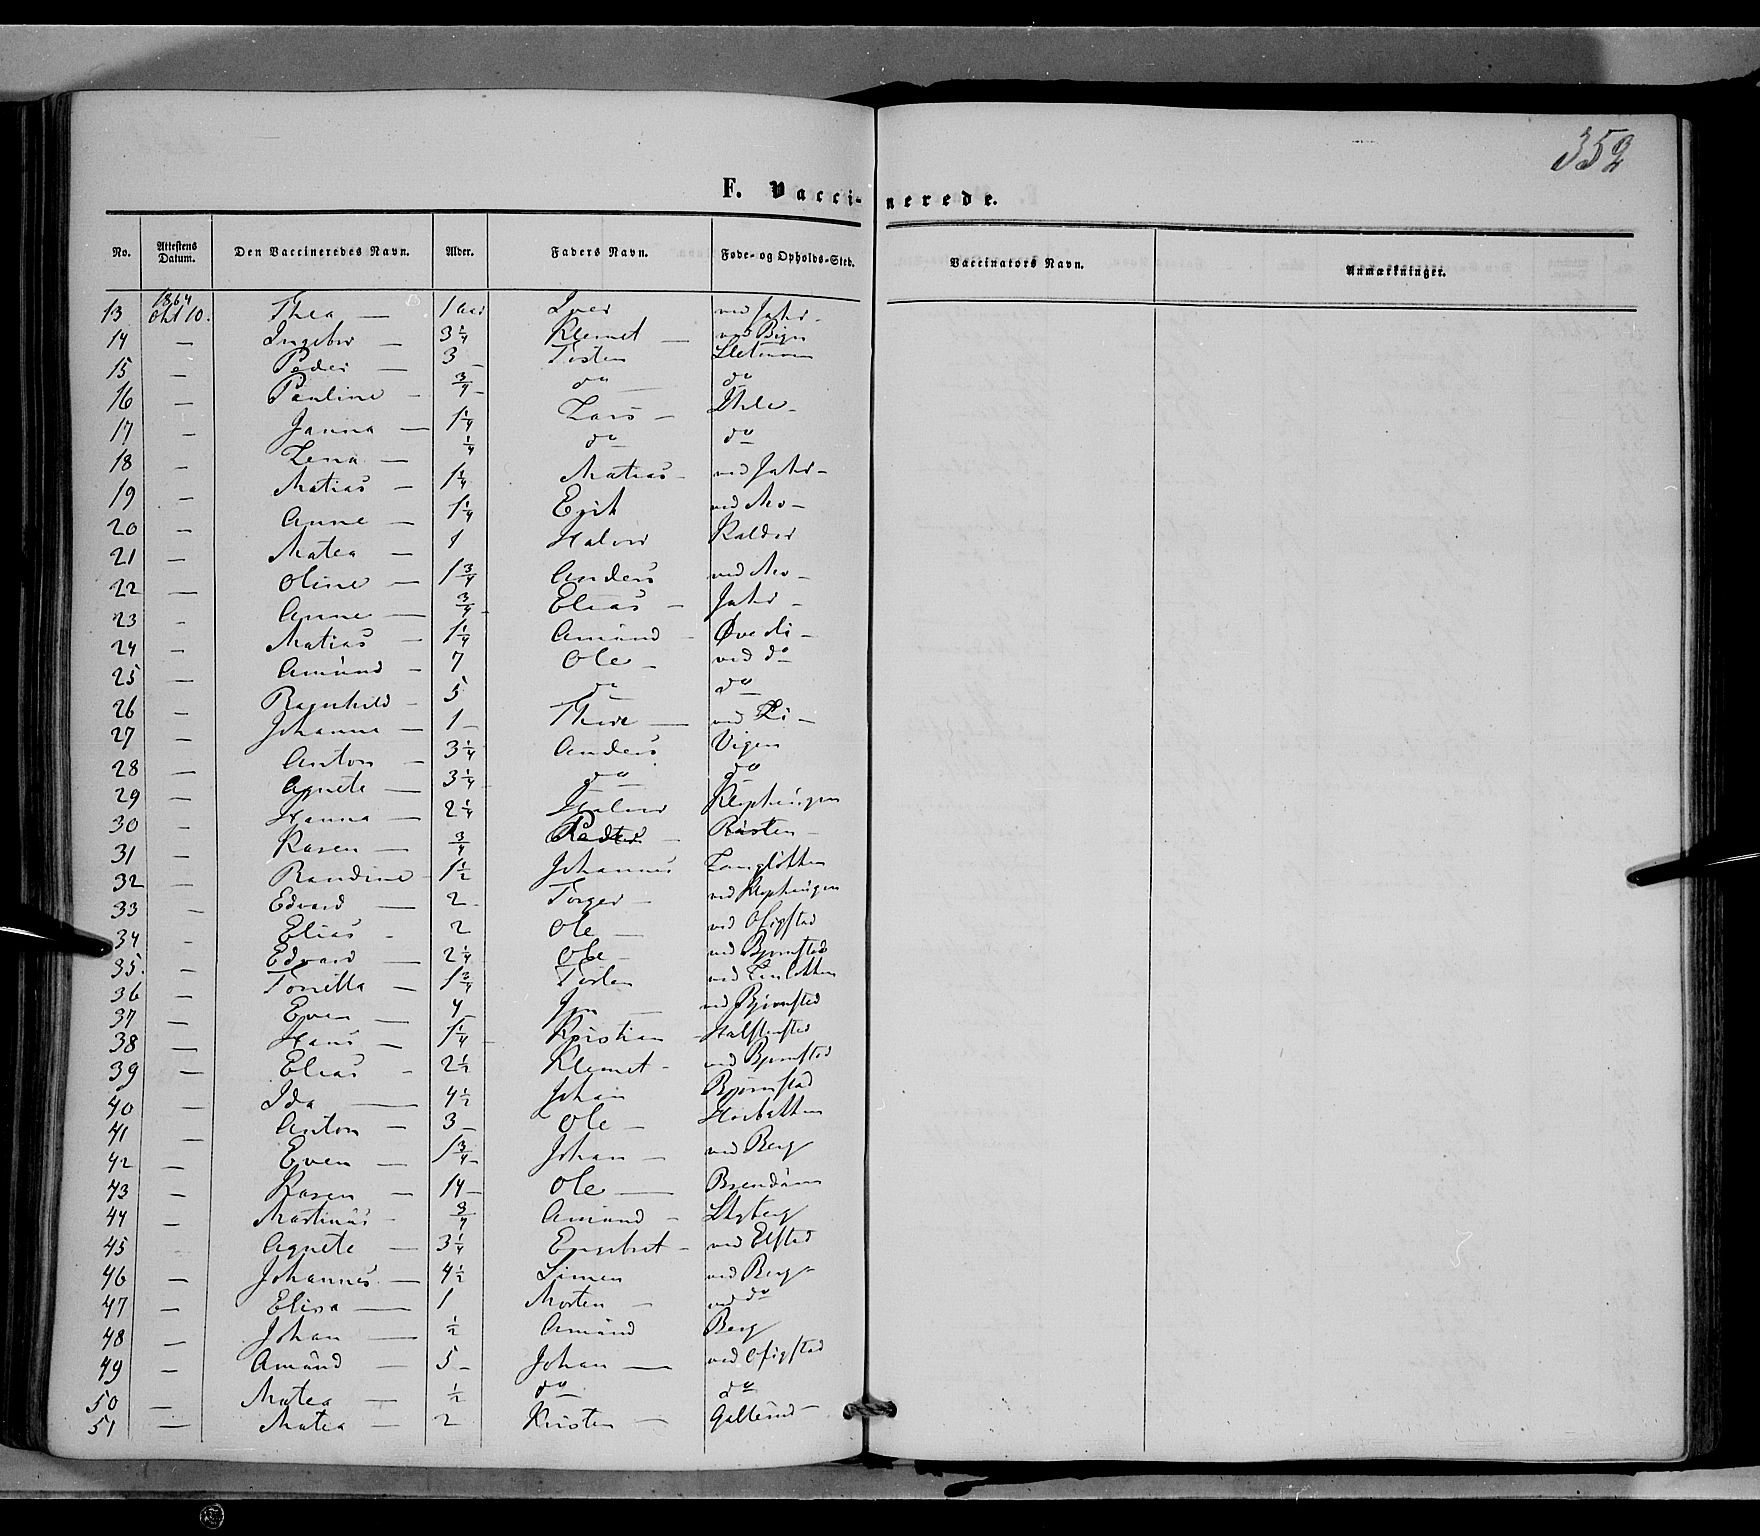 352
F. Vaccinerede.
No. Attestens Datum. Den Vaccineredes Navn. Alder. Faders Navn. Føde- og Opholds-Sted. Vaccinators Navn. Anmærkninger.
13 1864 Okt 10. Thea — 1 aar Iver ved Jahr -
14 — Ingebor — 3 1/4 Klemet — ved Bign
15 — Peder — 3 — Torsten
16 — Pauline - 3/4 - do — do
17 — Janna — 1 1/4 Lars - Ihle -
18 — Lena — 1/4 do do
19 — Matias — 1 1/4 Matias - ved Jahr -
20 — Anne — 1 1/4 Erik ved Mo -
21 — Matea — 1 Halvor Kalder
22 — Oline — 1 3/4 Anders ved Mo -
23 - Anne — 3/4 - Elias - Jahr -
24 — Matias — 1 1/4 Amund -
25 — Amund — 7 Ole - ved do
26 — Ragnhild - 5 do do
27 — Johanna — 1 - Thore — ved Li -
28 — Anton - 3 1/4 Anders Vigen
29 — Agnete — 3 1/4 do do
30 - Hanna — 2 1/4 Halvor Klophaugen
31 — Karen — 3/4 Peder - Rusten -
32 — Randine - 1 1/2 Johannes
33 — Edvard — 2 - Torger — ved Klophaugen
34 - Elias - 2 Ole — ved Ofigstad
35. — Edvard — 2 1/4 Ole - ved Bjørnstad
36 — Tonetta — 1 3/4 Torsten ved
37 — Even — 4 — ved Bjørnstad
38 — Hans — 1 1/4 - Kristian Halstenstad
39 — Elias - 2 1/2 Klemet - ved Bjørnstad
40 - Ida — 4 1/2 Johan Bjørnstad
41 — Anton — 3 - Ole —
42 — Even — 1 3/4 - Johan — ved Berg
43 — Karen — 14 - Ole —
44 — Martinus - 3/4 Amund -
45 - Agnete — 3 1/4 Engebret - ved Elstad
46 — Johannes — 4 1/2 Simen ved Berg -
47 — Elisa — 1 Morten — ved do
48 — Johan — 1/2 Amund Berg
49 — Amund — 5 - Johan — ved Ofigstad
50 — Matea — 1/2 do do
51 — Matea — 2 Kristen — Gallerud -